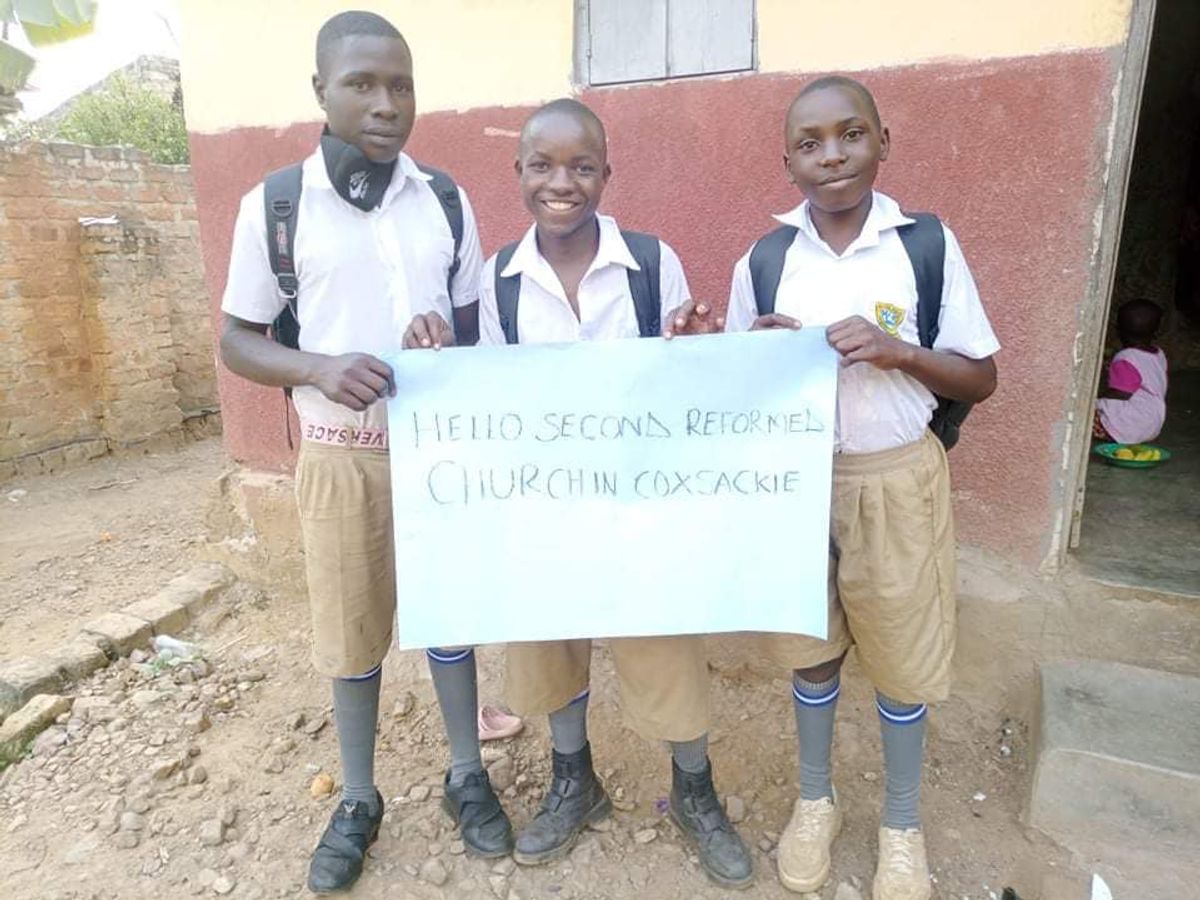 HELLO SECOND REFORMED
CHURCH IN COXSACKIE
VERSACE